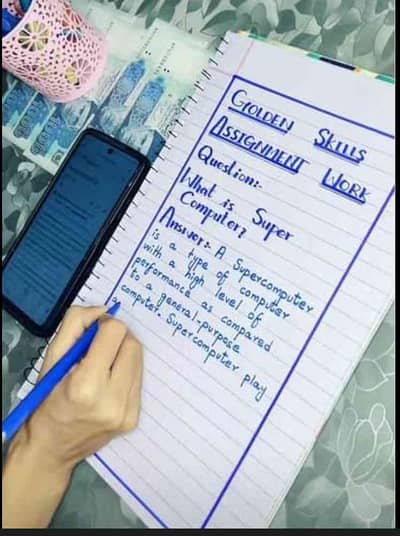 GOLDEN SKILLS
ASSIGNMENT WORK
Question:-
What is Super
Computer?
Answer:- A Supercomputer
is a type of computer
with a high level of
performance as compared
to a general-purpose
computer. Supercomputer play
a